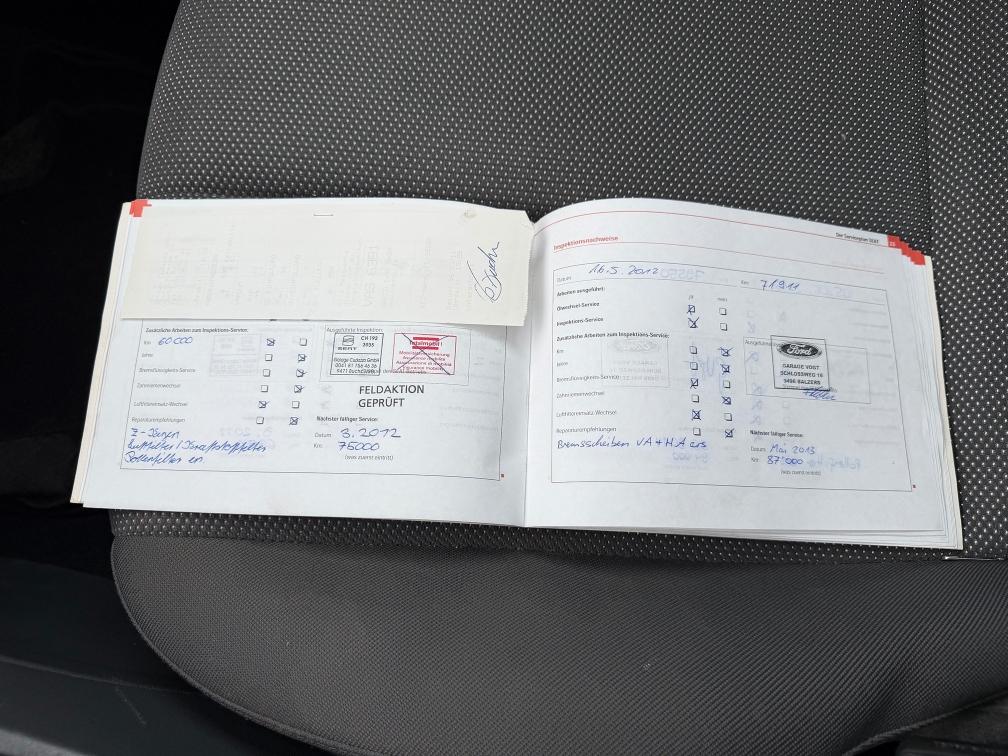 Zusätzliche Arbeiten zum Inspektions-Service:
Km 60000
Jahre
Bremsflüssigkeits-Service
Zahnriemenwechsel
Luftfiltereinsatz-Wechsel
Reparaturempfehlungen
Ausgeführte Inspektion:
SEAT
CH 192
3035
9471 Buchs
FELDAKTION
GEPRÜFT
Nächster fälliger Service:
Datum 3.2012
Km 75000
(was zuerst eintritt)
Der Serviceplan SEAT
Inspektionsnachweise
Datum 16.5.2012
Km 71911
Arbeiten ausgeführt:
ja nein
Ölwechsel-Service
Inspektions-Service
Zusätzliche Arbeiten zum Inspektions-Service:
Km
Jahre
Bremsflüssigkeits-Service
Zahnriemenwechsel
Luftfiltereinsatz-Wechsel
Reparaturempfehlungen
Bremsscheiben VA+HA ers
Ford
GARAGE VOGT
SCHLOSSWEG 16
9496 BALZERS
Nächster fälliger Service:
Datum Mai 2013
Km 87'000
(was zuerst eintritt)